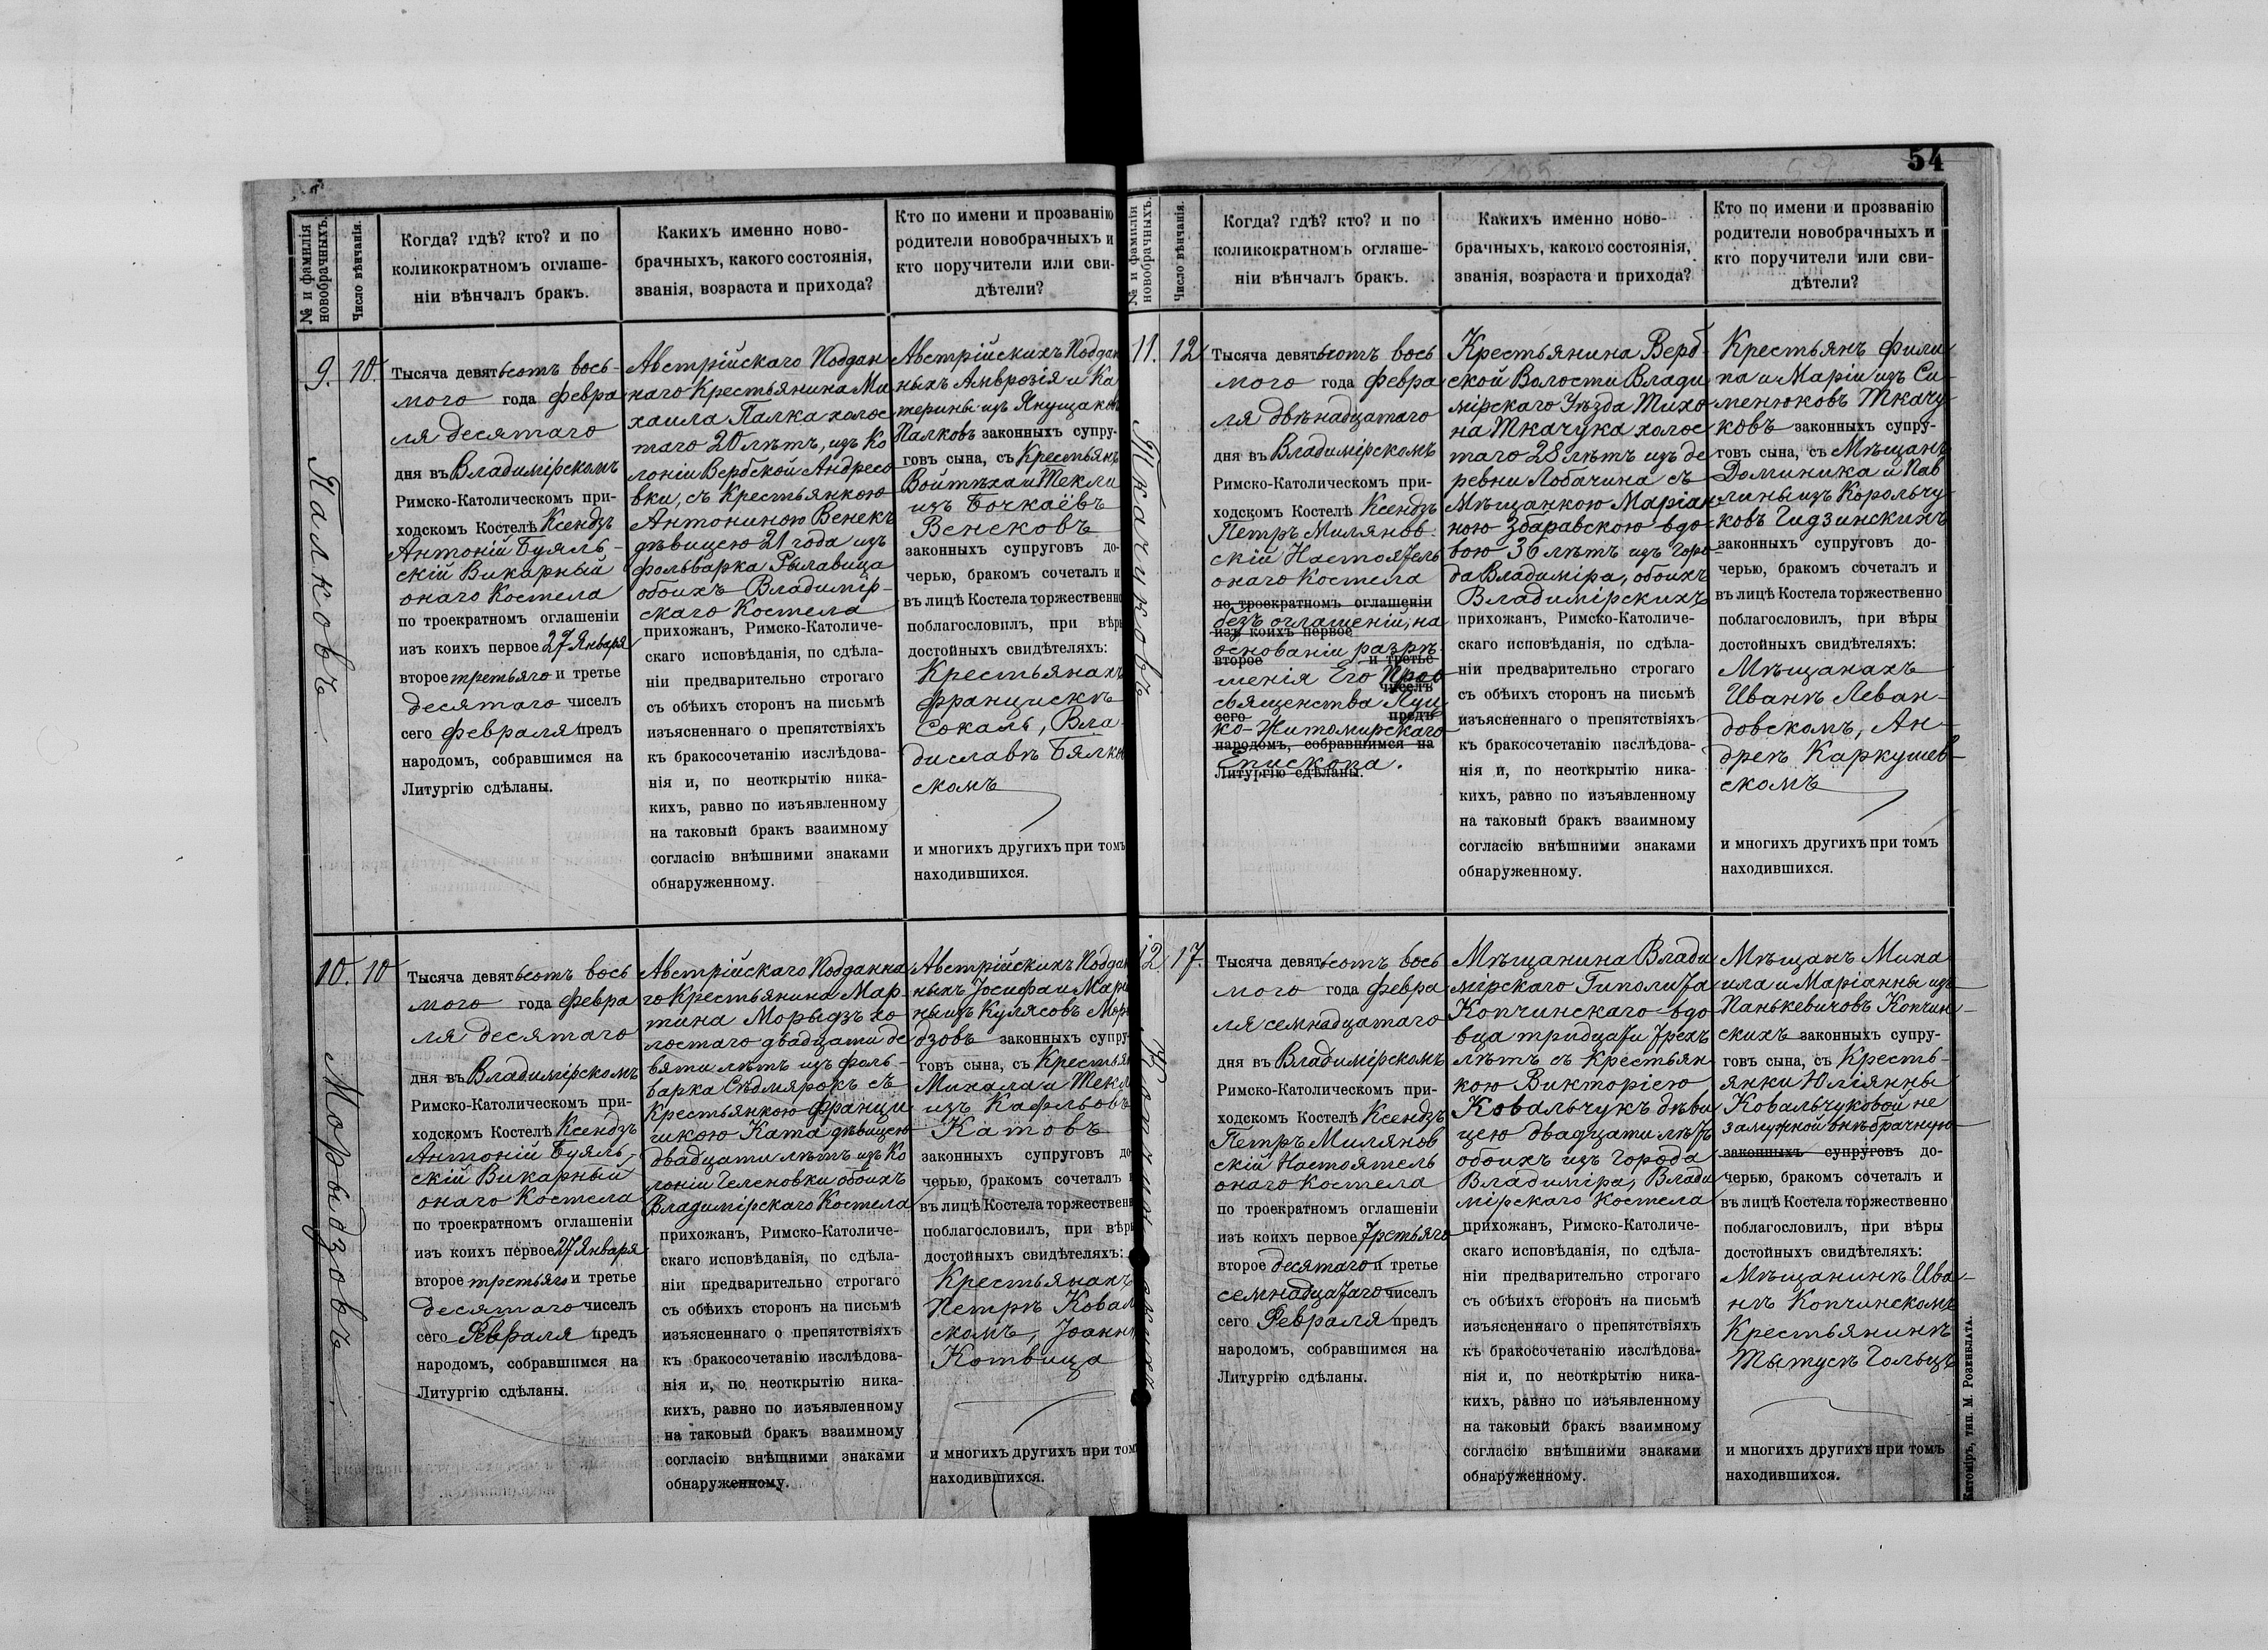 54
№ и фамилія новобрачныхъ.
Число вѣнчанія.
Когда? гдѣ? кто? и по
коликократномъ оглаше-
ніи вѣнчалъ бракъ.
Какихъ именно ново-
брачныхъ, какого состоянія,
званія, возраста и прихода?
Кто по имени и прозванію
родители новобрачныхъ и
кто поручители или сви-
дѣтели?
9.
Палковъ
10.
Тысяча девятьсотъ вось-
мого года февра
ля десятаго
дня въ Владимірскомъ
Римско-Католическомъ при-
ходскомъ Костелѣ Ксендзъ
Антоній Буяль-
скій Викарный
онаго Костела
по троекратномъ оглашеніи
изъ коихъ первое 27 Января
второе третьяго и третье
десятаго чиселъ
сего февраля предъ
народомъ, собравшимся на
Литургію сдѣланы.
Австрійскаго Поддан
наго Крестьянина Ми
хаила Палка холос
таго 20 лѣтъ, изъ Ко
лоніи Вербской Андресо
вки, съ Крестьянкою
Антониною Венекъ
дѣвицею 21 года изъ
фольварка Рылавица
обоихъ Владимір-
скаго Костела
прихожанъ, Римско-Католиче-
скаго исповѣданія, по сдѣла-
ніи предварительно строгаго
съ обѣихъ сторонъ на письмѣ
изъясненнаго о препятствіяхъ
къ бракосочетанію изслѣдова-
нія и, по неоткрытію ника-
кихъ, равно по изъявленному
на таковый бракъ взаимному
согласію внѣшними знаками
обнаруженному.
Австрійскихъ Поддан
ныхъ Амврозія и Ка
терины изъ Янущаковъ
Палковъ законныхъ супру-
говъ сына, съ Крестьянъ
Войтѣха и Текли
изъ Бочкаёвъ
Венсковъ
законныхъ супруговъ до-
черью, бракомъ сочеталъ и
въ лицѣ Костела торжественно
поблагословилъ, при вѣры
достойныхъ свидѣтеляхъ:
Крестьянахъ
Францискѣ
Сокалъ, Вла-
диславѣ Бялков
скомъ
и многихъ другихъ при томъ
находившихся.
10.
Морыдзовъ
10
Тысяча девятьсотъ вось
мого года февра
ля десятаго
дня въ Владимірскомъ
Римско-Католическомъ при-
ходскомъ Костелѣ Ксендзъ
Антоній Буяль-
скій Викарный
онаго Костела
по троекратномъ оглашеніи
изъ коихъ первое 27 Января
второе третьяго и третье
десятаго чиселъ
сего Февраля предъ
народомъ, собравшимся на
Литургію сдѣланы.
Австрійскаго Подданна
го Крестьянина Мар-
тина Морыдзъ хо
лостаго двадцати де
вяти лѣтъ изъ фоль-
варка Сѣдмярокъ съ
Крестьянкою Франци
шкою Ката дѣвицею
двадцати лѣтъ изъ Ко
лоніи Геленовки обоихъ
Владимірскаго Костела
прихожанъ, Римско-Католиче-
скаго исповѣданія, по сдѣла-
ніи предварительно строгаго
съ обѣихъ сторонъ на письмѣ
изъясненнаго о препятствіяхъ
къ бракосочетанію изслѣдова-
нія и, по неоткрытію ника-
кихъ, равно по изъявленному
на таковый бракъ взаимному
согласію внѣшними знаками
обнаруженному.
Австрійскихъ Поддан
ныхъ Іосифа и Марі
ны изъ Кулясовъ Моры
дзовъ законныхъ супру-
говъ сына, съ Крестьян
Михала и Текли
изъ Кафльовъ
Катовъ
законныхъ супруговъ до-
черью, бракомъ сочеталъ
въ лицѣ Костела торжественно
поблагословилъ, при вѣры
достойныхъ свидѣтеляхъ:
Крестьянахъ
Петрѣ Коваль
скомъ, Іоаннѣ
Котвица
и многихъ другихъ при томъ
находившихся.
№ и фамилія новобрачныхъ.
Число вѣнчанія.
Когда? гдѣ? кто? и по
коликократномъ оглаше-
ніи вѣнчалъ бракъ.
Какихъ именно ново-
брачныхъ, какого состоянія,
званія, возраста и прихода?
Кто по имени и прозванію
родители новобрачныхъ и
кто поручители или сви-
дѣтели?
11.
Ткачуковъ
12
Тысяча девятьсотъ вось
мого года февра
ля двѣнадцатаго
дня въ Владимірскомъ
Римско-Католическомъ при-
ходскомъ Костелѣ Ксендзъ
Петръ Милянов
скій Настоятель
онаго Костела
по троекратномъ оглашеніи
безъ оглашеній, на
изъ коихъ первое
основаніи разрѣ
второе и третье
шенія Его Прео
чиселъ
священства Луц
сего предъ
ко-Житомирскаго
народомъ, собравшимся на
Епископа.
Литургію сдѣланы.
Крестьянина Верб
ской Волости Влади
мірскаго Уѣзда Тихо
на Ткачука холос
таго 28 лѣтъ изъ де
ревни Лобачина съ
Мѣщанкою Маріан
ною Збаравскою вдо-
вою 36 лѣтъ изъ горо
да Владиміра, обоихъ
Владимірскихъ
прихожанъ, Римско-Католиче-
скаго исповѣданія, по сдѣла-
ніи предварительно строгаго
съ обѣихъ сторонъ на письмѣ
изъясненнаго о препятствіяхъ
къ бракосочетанію изслѣдова-
нія и, по неоткрытію ника-
кихъ, равно по изъявленному
на таковый бракъ взаимному
согласію внѣшними знаками
обнаруженному.
Крестьянъ Фили
па и Маріи изъ Си
менюковъ Ткачу
ковъ законныхъ супру-
говъ сына, съ Мѣщанъ
Доминика и Пав
лины изъ Корольчу
ковъ Гидзинскихъ
законныхъ супруговъ до-
черью, бракомъ сочеталъ и
въ лицѣ Костела торжественно
поблагословилъ, при вѣры
достойныхъ свидѣтеляхъ:
Мѣщанахъ
Иванѣ Леван-
довскомъ, Ан-
дреѣ Каркушев-
скомъ
и многихъ другихъ при томъ
находившихся.
12
17.
Тысяча девятьсотъ вось
мого года февра
ля семнадцатаго
дня въ Владимірскомъ
Римско-Католическомъ при-
ходскомъ Костелѣ Ксендзъ
Петръ Милянов
скій Настоятель
онаго Костела
по троекратномъ оглашеніи
изъ коихъ первое третьяго
второе десятаго и третье
семнадцатаго чиселъ
сего Февраля предъ
народомъ, собравшимся на
Литургію сдѣланы.
Мѣщанина Влади
мірскаго Гиполита
Копчинскаго вдо
вца тридцати трехъ
лѣтъ съ Крестьян
кою Викторіею
Ковальчукъ дѣви
цею двадцати лѣтъ
обоихъ изъ города
Владиміра, Влади
мірскаго Костела
прихожанъ, Римско-Католиче-
скаго исповѣданія, по сдѣла-
ніи предварительно строгаго
съ обѣихъ сторонъ на письмѣ
изъясненнаго о препятствіяхъ
къ бракосочетанію изслѣдова-
нія и, по неоткрытію ника-
кихъ, равно по изъявленному
на таковый бракъ взаимному
согласію внѣшними знаками
обнаруженному.
Мѣщанъ Миха
ила и Маріанны изъ
Панькевичовъ Копчин-
скихъ законныхъ супру-
говъ сына, съ Кресть-
янки Юліянны
Ковальчуковой не
замужной внѣбрачную
законныхъ супруговъ до-
черью, бракомъ сочеталъ и
въ лицѣ Костела торжественно
поблагословилъ, при вѣры
достойныхъ свидѣтеляхъ:
Мѣщанинѣ Ива-
нѣ Копчинскомъ
Крестьянинѣ
Тытусѣ Гольцъ
и многихъ другихъ при томъ
находившихся.
Житоміръ, тип. М. Розенблата.